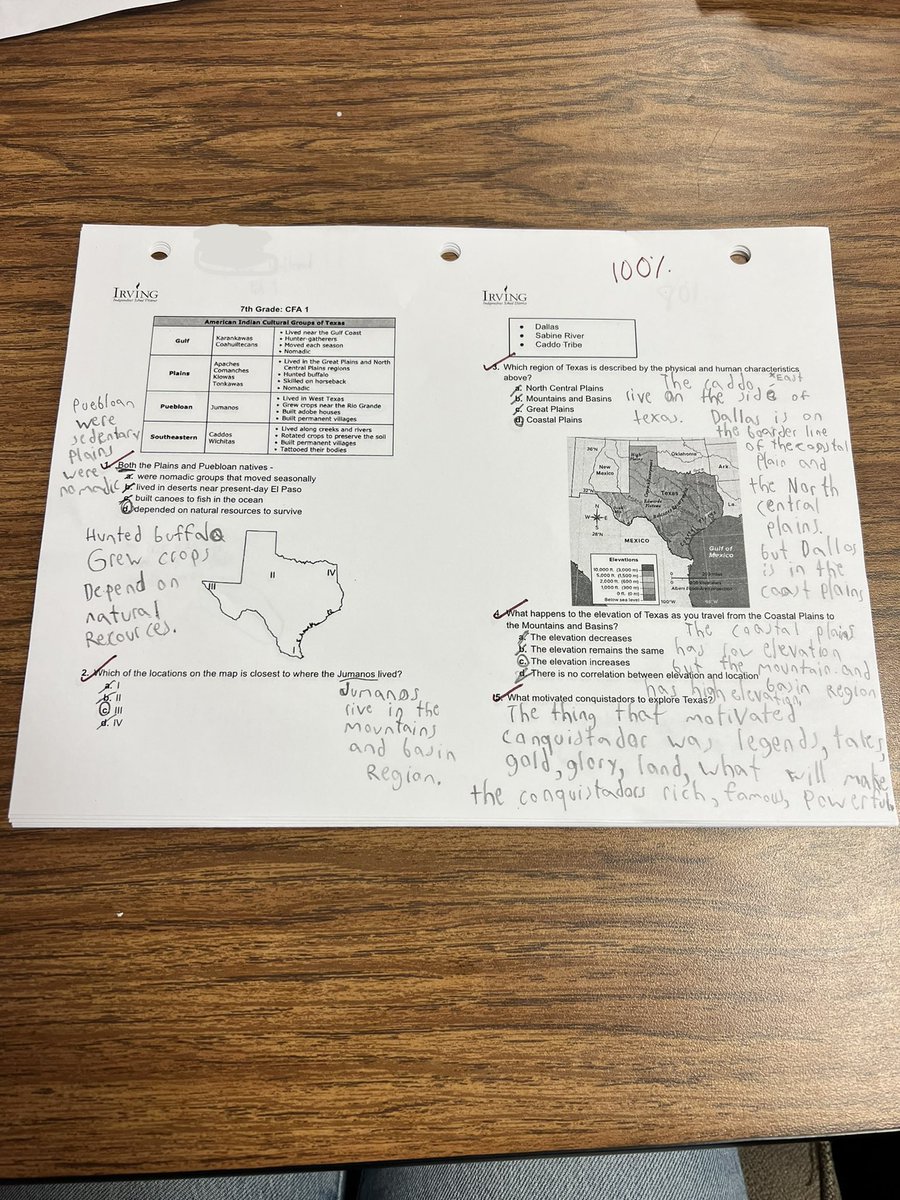 IRVING
Independent School District
7th Grade: CFA 1
American Indian Cultural Groups of Texas
Gulf
Karankawas
Coahuiltecans
• Lived near the Gulf Coast
• Hunter-gatherers
• Moved each season
• Nomadic
Plains
Apaches
Comanches
Kiowas
Tonkawas
• Lived in the Great Plains and North
Central Plains regions
• Hunted buffalo
• Skilled on horseback
• Nomadic
Puebloan
Jumanos
• Lived in West Texas
• Grew crops near the Rio Grande
• Built adobe houses
• Built permanent villages
Southeastern
Caddos
Wichitas
• Lived along creeks and rivers
• Rotated crops to preserve the soil
• Built permanent villages
• Tattooed their bodies
Puebloan
were
sedentary
Plains
were
nomadic
1. Both the Plains and Puebloan natives -
a. were nomadic groups that moved seasonally
b. lived in deserts near present-day El Paso
c. built canoes to fish in the ocean
d. depended on natural resources to survive
Hunted buffalo
Grew crops
Depend on
natural
Recources.
II
III
IV
I
2. Which of the locations on the map is closest to where the Jumanos lived?
a. I
b. II
c. III
d. IV
Jumanos
live in the
mountains
and basin
Region.
100%
IRVING
Independent School District
• Dallas
• Sabine River
• Caddo Tribe
3. Which region of Texas is described by the physical and human characteristics
above?
a. North Central Plains
b. Mountains and Basins
c. Great Plains
d. Coastal Plains
The caddo *East
live on the side of
texas. Dallas is on
the boarder line
of the coastal
Plain and
the North
central
plains.
but Dallas
is in the
coast plains
36°N
High Plains
Oklahoma
New
Mexico
Ark.
32°N
Texas
Edwards
Plateau
La.
W
N
E
S
28°N
MEXICO
Gulf of
Mexico
Elevations
10,000 ft. (3,000 m)
5,000 ft. (1,500 m)
2,000 ft. (600 m)
1,000 ft. (300 m)
0 ft. (0 m)
Below sea level
100°W
4. What happens to the elevation of Texas as you travel from the Coastal Plains to
the Mountains and Basins?
a. The elevation decreases
b. The elevation remains the same
c. The elevation increases
d. There is no correlation between elevation and location
The coastal plains
has low elevation
but the mountain and
basin Region
has high elevation
5. What motivated conquistadors to explore Texas?
The thing that motivated
conquistador was legends, tales,
gold, glory, land, what will make
the conquistadors rich, famous, powerful